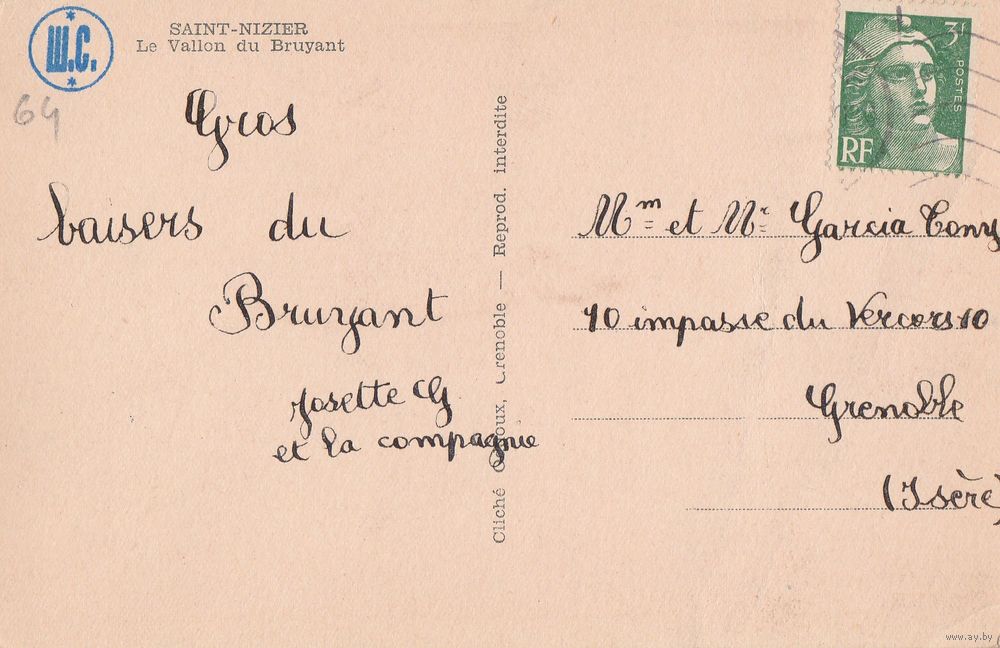 W.C.
SAINT-NIZIER
Le Vallon du Bruyant
64
Gros
baisers du
Bruyant
Josette G
et la compagnie
Grenoble — Reprod. interdite
Cliché
3f
POSTES
RF
Mm et Mr Garcia Tony
10 impasse du Vercors 10
Grenoble
(Isère)
www.ay.by